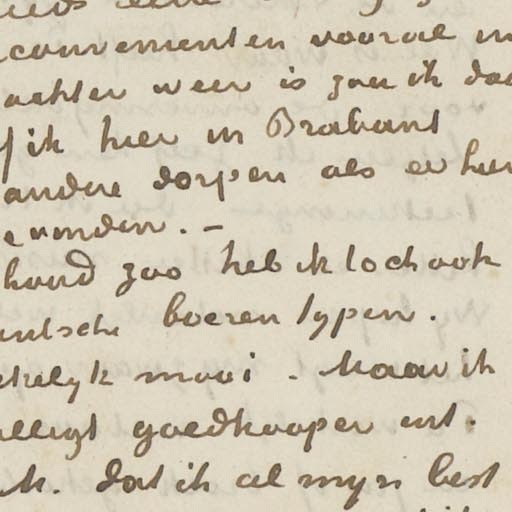 convenienten vooral in
achter weer is zou ik do
ik hier in Brabant
andere dorpen als er hier
e vinden. –
houd zoo heb ik loch ook
ntsche boeren typen.
kelyk mooi. Maar ik
lligt goedkooper uit.
k. dat ik al myn best